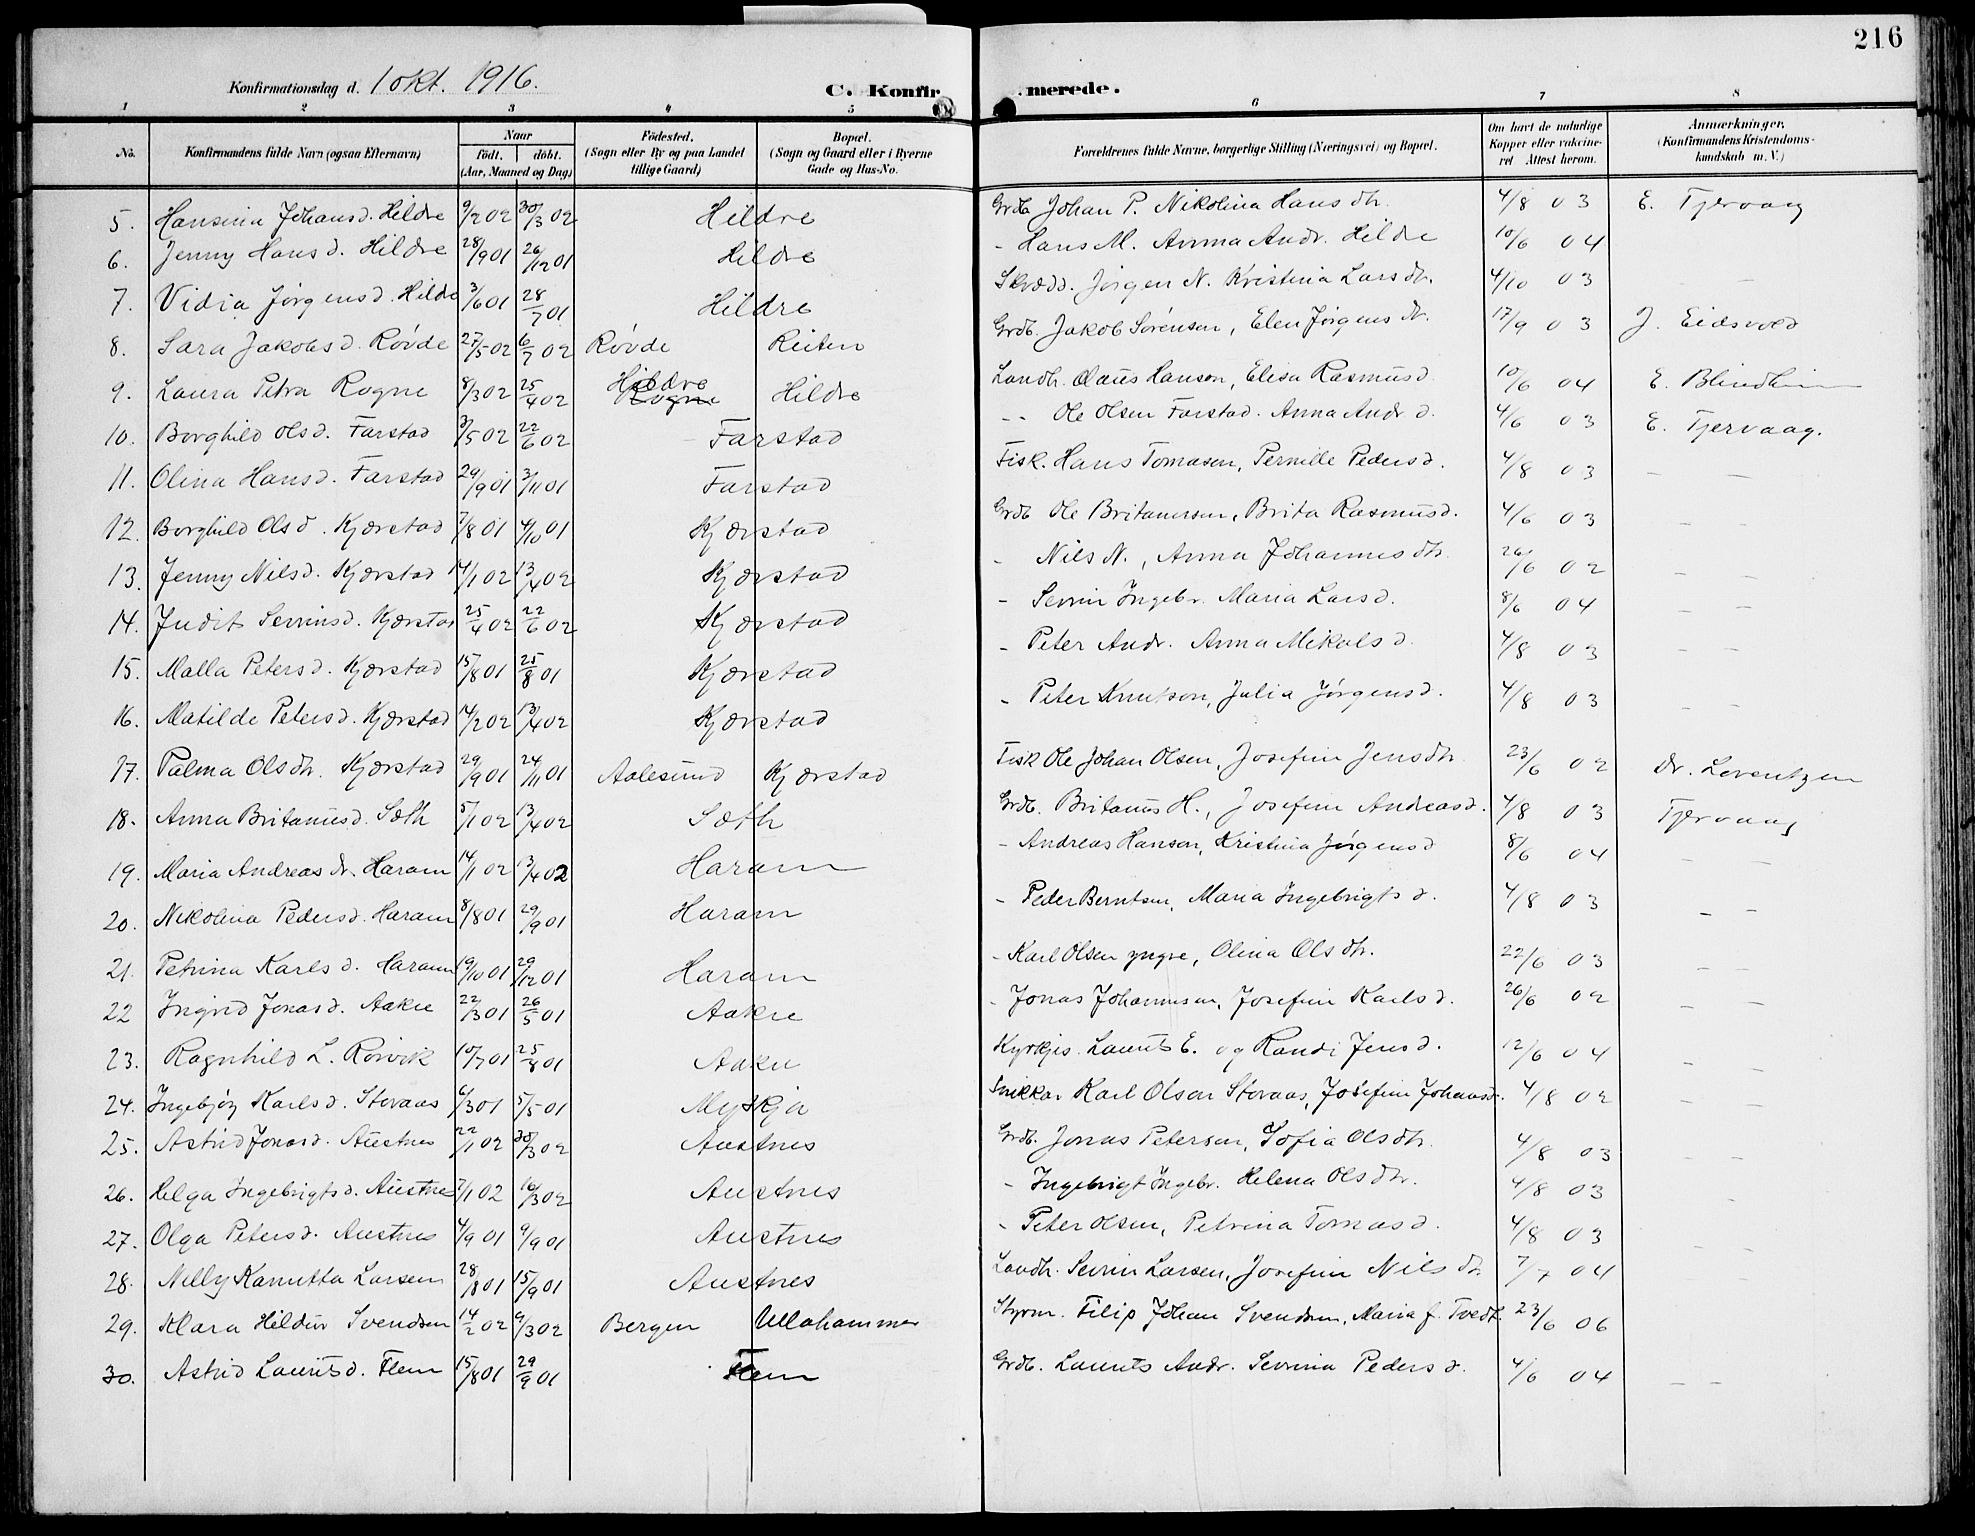 216
Konfirmationsdag d. 1 okt. 1916. C. Konfir merede.
1 2 3 4 5 6 7 8
No. Konfirmandens fulde Navn (ogsaa Efternavn) Naar født. døbt. (Aar, Maaned og Dag) Fødested. (Sogn eller By og paa Landet tillige Gaard) Bopæl. (Sogn og Gaard eller i Byerne Gade og Hus-No. Forældrenes fulde Navne, borgerlige Stilling (Næringsvei) og Bopæl. Om havt de naturlige Kopper eller vaccineret Attest herom. Anmærkninger, (Konfirmandens Kristendomskundskab m. V.)
5. Hansina Johansd. Hildre 9/2 02 30/3 02 Hildre Grdb Johan P. Nikolina Hansdtr. 4/8 03 E. Tjervaag
6. Jenny Hansd. Hildre 28/9 01 26/12 01 Hildre - Hans M. Anna Andr. Hildre 10/6 04
7. Vidia Jørgensd. Hildre 3/6 01 28/7 01 Hildre Skrædd. Jørgen N. Kristina Larsdtr. 4/10 03 —
8. Sara Jakobsd. Røvde 27/5 02 6/7 02 Røvde Reiten Grdb. Jakob Sørensen, Elen Jørgensdtr. 17/9 03 J. Eidsvold
9. Laura Petra Rogne 8/3 02 25/4 02 Hildre Rogne Hildre Landh. Claus Hanson, Elesa Rasmusd. 10/6 04 E. Blindheim
10. Borghild Olsd. Farstad 3/5 02 22/6 02 Farstad -- Ole Olsen Farstad. Anna Andr d. 4/6 03 E. Tjervaag.
11. Olina Hansd. Farstad 29/9 01 3/11 01 Farstad Fisk. Hans Tomasen, Pernille Pedersd. 4/8 03 — —
12. Borghild Olsd. Kjærstad 7/8 01 4/10 01 Kjærstad Grdb Ole Britanusen, Brita Rasmusd. 4/6 03 — —
13. Jenny Nilsd. Kjærstad 14/1 02 13/4 02 Kjærstad - Nils N., Anna Johannesdtr. 26/6 02 — —
14. Judit Sevrinsd. Kjærstad 25/4 02 22/6 02 Kjærstad - Sevrin Ingebr. Maria Larsd. 8/6 04 — —
15. Malla Petersd. Kjærstad 15/8 01 25/8 01 Kjærstad - Peter Andr. Anna Mikalsd. 4/8 03 — —
16. Matilde Petersd. Kjærstad 14/2 02 13/4 02 Kjærstad - Peter Knutson, Julia Jørgensd. 4/8 03 — —
17. Palma Olsdtr. Kjærstad 29/9 01 24/11 01 Aalesund Kjærstad Fisk Ole Johan Olsen, Josefine Jensdtr. 23/6 02 Dr. Lorentzen
18. Anna Britanusd. Sæth 5/1 02 13/4 02 Sæth Grdb. Britanus H., Josefine Andreasd. 4/8 03 Tjervaag
19. Maria Andreasdtr. Haram 14/1 02 13/4 02 Haram - Andreas Hanson, Kristina Jørgensd 8/6 04 — —
20. Nikolina Pedersd. Haram 8/8 01 29/9 01 Haram - Peder Berntsen, Maria Ingebrigtsd. 4/8 03 — —
21. Petrina Karlsd. Haram 19/10 01 29/12 01 Haram - Karl Olsen yngre, Olina Olsdtr. 22/6 03 — —
22 Ingrid Jonasd. Aakre 22/3 01 26/5 01 Aakre - Jonas Johannesen, Josefine Karlsd. 26/6 02 — —
23. Ragnhild L. Rørvik 10/7 01 25/8 01 Aakre Kyrkjes. Laurits E. og Randi Jensd. 12/6 04 — —
24. Ingebjør Karlsd. Storaas 6/3 01 5/5 01 Myskja Snikkar Karl Olson Storaas, Josefine Johansd. 4/8 02 — —
25. Astrid Jonasd. Austnes 22/1 02 30/3 02 Austnes Grdb. Jonas Peterson, Sofia Olsdtr. 4/8 03 — —
26. Helga Ingebrigtsd. Austnes 7/1 02 16/3 02 Austnes - Ingebrigt Ingebr. Helena Olsdtr. 4/8 03 — —
27. Olga Petersd. Austnes 4/9 01 9/9 01 Austnes - Peter Olsen, Petrina Tomasd. 4/8 03 — —
28. Nelly Kanutta Larsen 28/8 01 15/9 01 Austnes Landh. Sevrin Larsen, Josefine Nilsdtr 7/7 04 — —
29. Klara Hildur Svendsen 14/2 02 9/3 02 Bergen Ullahammer Styrm. Filip Johan Svendsen, Maria f. Tvedt. 23/6 06 — —
30. Astrid Lauritsd. Flem 15/8 01 29/9 01 Flem Grdb. Laurits Andr. Sevrina Pedersd. 4/6 04 — —